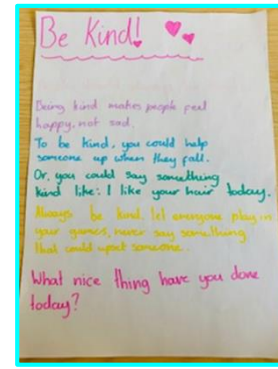 Be Kind!
Being kind makes people feel
happy, not sad.
To be kind, you could help
someone up when they fall.
Or, you could say something
kind like: I like your hair today.
Always be kind, let everyone play in
your games, never say something
that could upset someone.
What nice thing have you done
today?